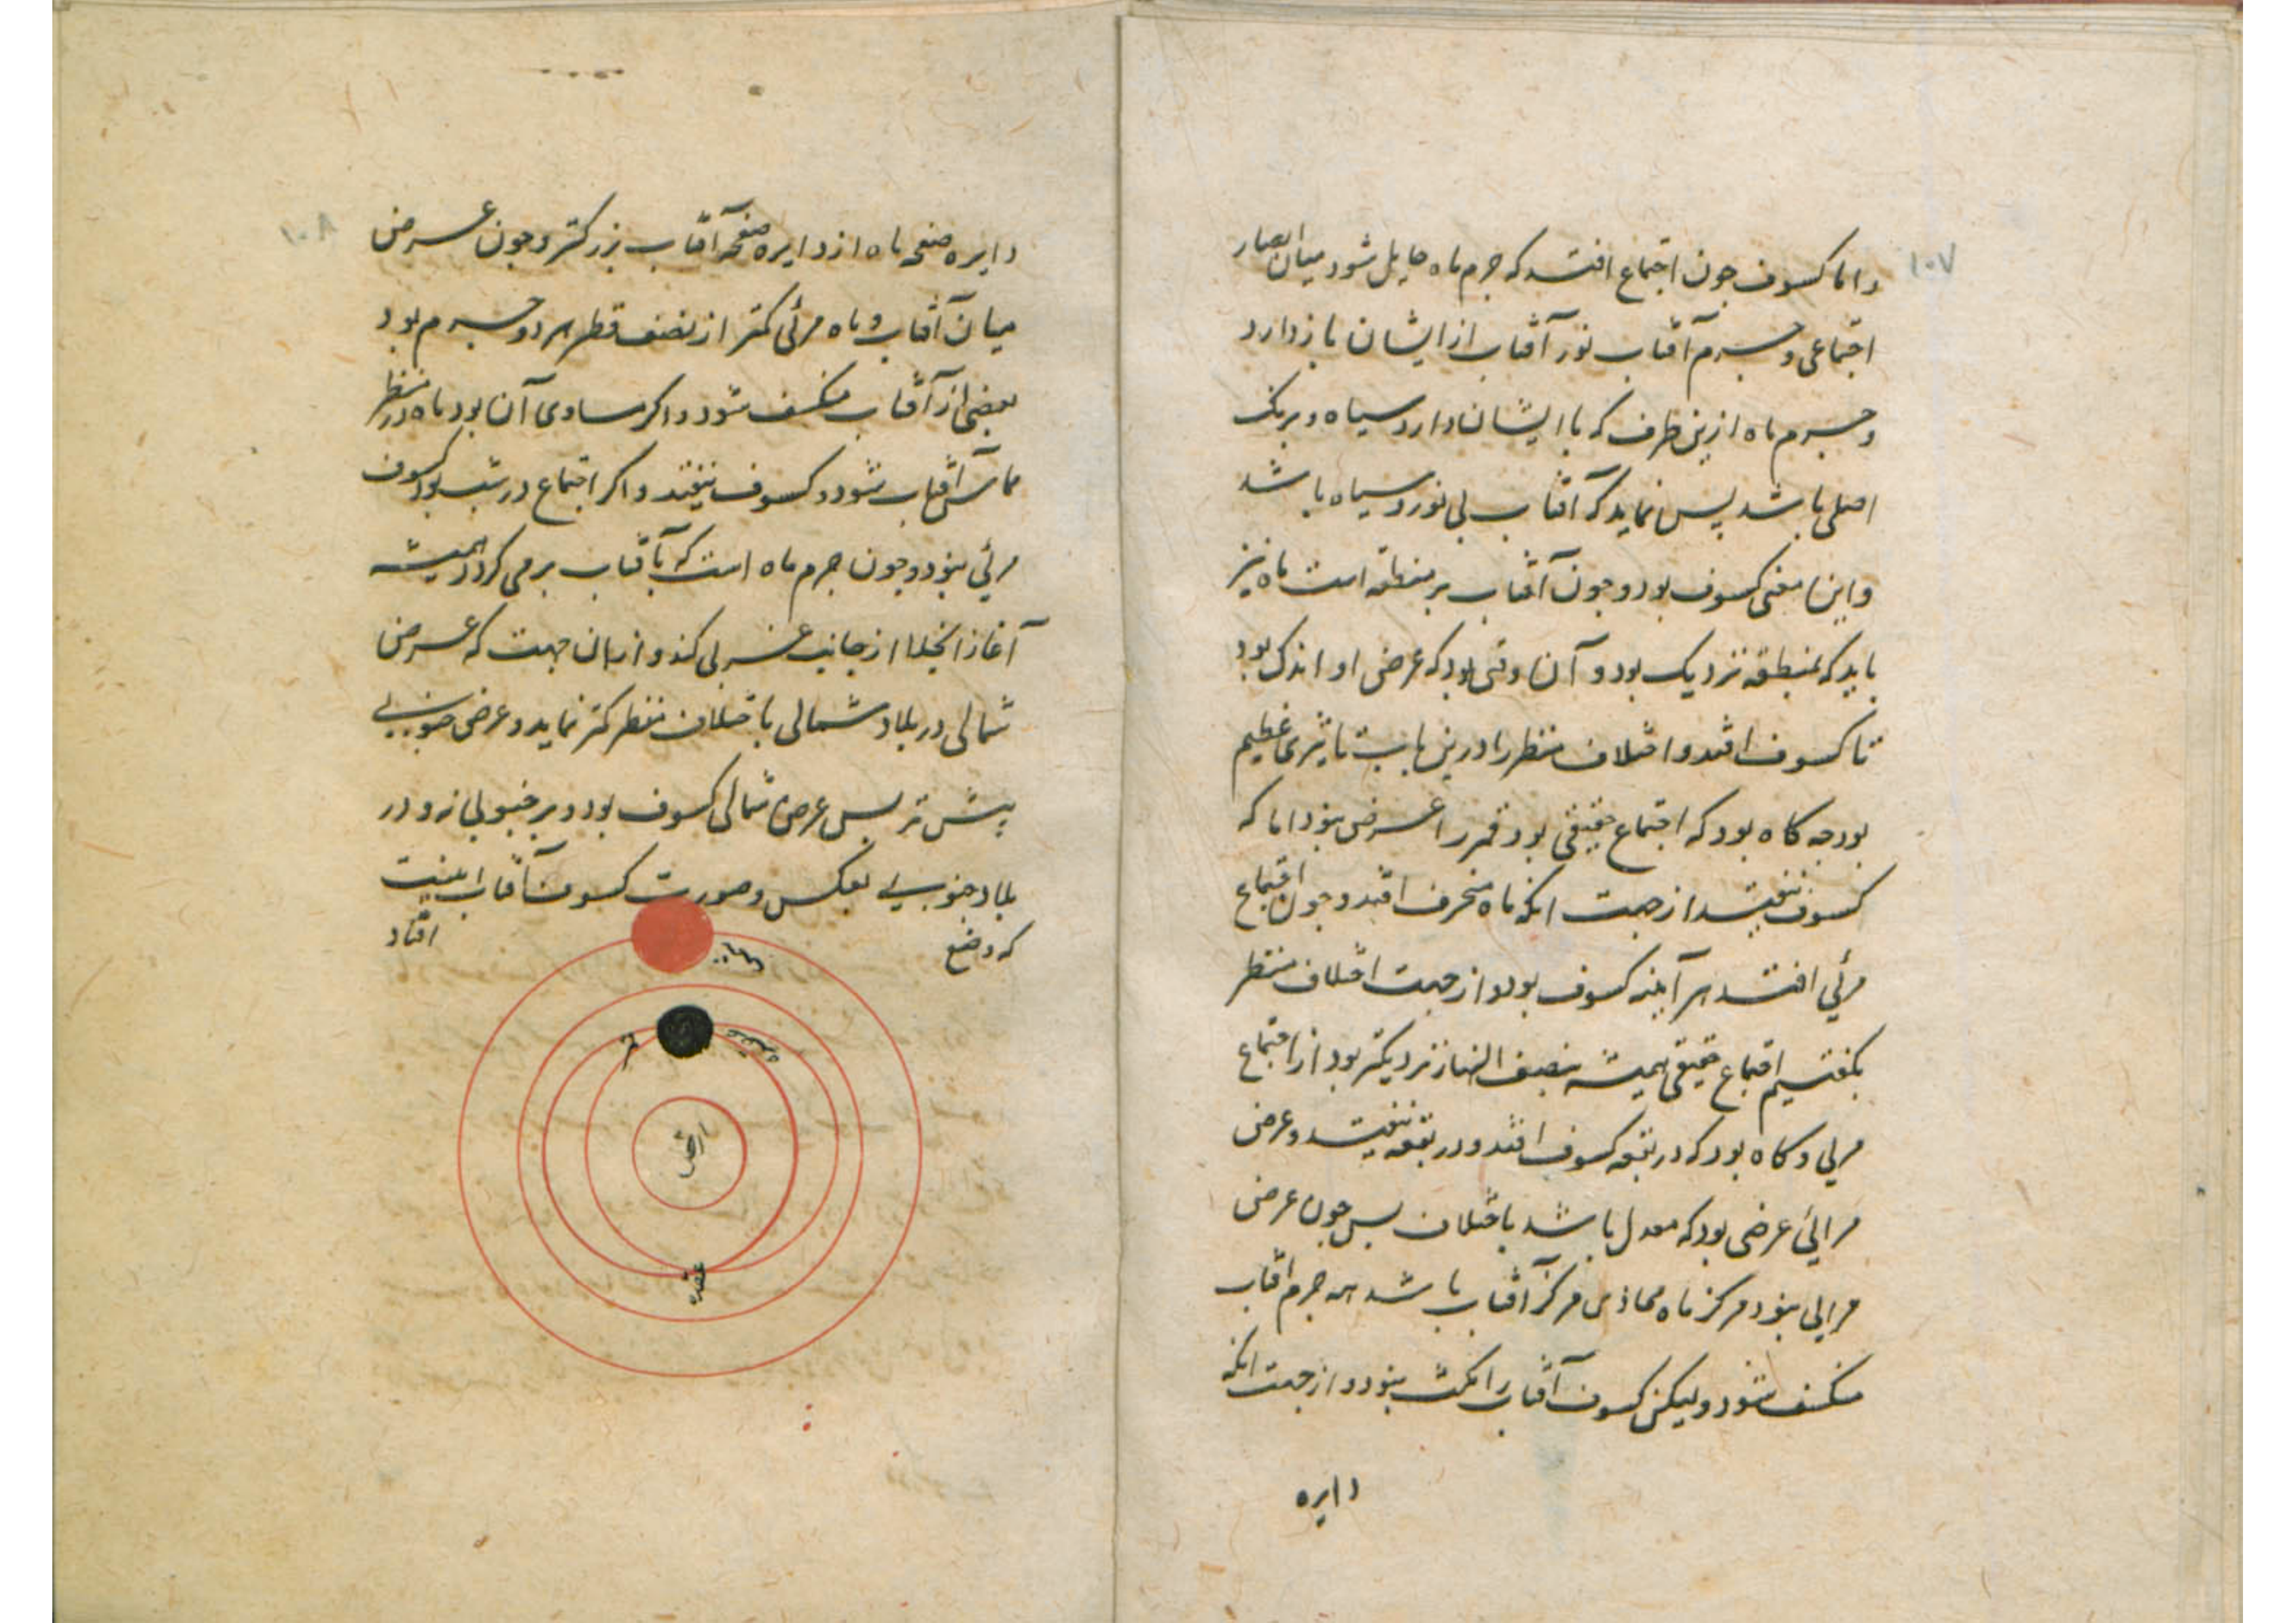 ۱۰۷
و اما کسوف جون اجتماع افتد که جرم ماه حایل شود میان ابصار
اجتماعی و جرم آفتاب نور آفتاب از ایشان باز دارد
و جرم ماه ازین طرف که با ایشان دارد سیاه و برنک
اصلی باشد بس نماید که آفتاب بی نور و سیاه باشد
و این معنی کسوف بود و جون آفتاب بر منطقه است ماه نیز
باید که بمنطقه نزدیک بود و آن وقتی بود که عرض او اندک بود
تا کسوف افتد و اختلاف منظر را درین باب تاثیری عظیم
بود جه کاه بود که اجتماع حقیقی بود قمر را عرض نبود اما که
کسوف نیفتد از جهت انکه ماه منحرف افتد و جون اجتماع
مرئی افتد هر آینه کسوف بود و از جهت اختلاف منظر
بکفتیم اجتماع حقیقی همیشه بنصف النهار نزدیکتر بود از اجتماع
مریی و کاه بود که در بقعه کسوف افتد و در بقعه نیفتد و عرض
مرایی عرضی بود که معدل باشد باختلاف بس جون عرض
مرایی نبود مرکز ماه محاذی مرکز آفتاب باشد همه جرم آفتاب
منکسف شود و لیکن کسوف آفتاب را مکث نبود و از جهت انکه
دایره
۱۰۸
دایره صفحه ماه از دایره صفحه آفتاب بزرکتر و جون عرض
میان آفتاب و ماه مرئی کمتر از نصف قطر هر دو جرم بود
بعضی از آفتاب منکسف شود و اکر مساوی آن بود ماه در منظر
مماس آفتاب شود و کسوف نیفتد و اکر اجتماع در شب بود کسوف
مرئی نبود و جون جرم ماه است که بآفتاب بر می کردد همیشه
آغاز انجلا از جانب غربی کند و از بهر ان جهت که عرض
شمالی در بلاد شمالی باختلاف منظر کمتر نماید و عرض جنوبی
بیشتر بس عرض شمالی کسوف بود و بر جنوبی نه و در
بلاد جنوبی بعکس و صورت کسوف آفتاب اینست
که وضع افتاد
عقده
قمر
ارض
عقده